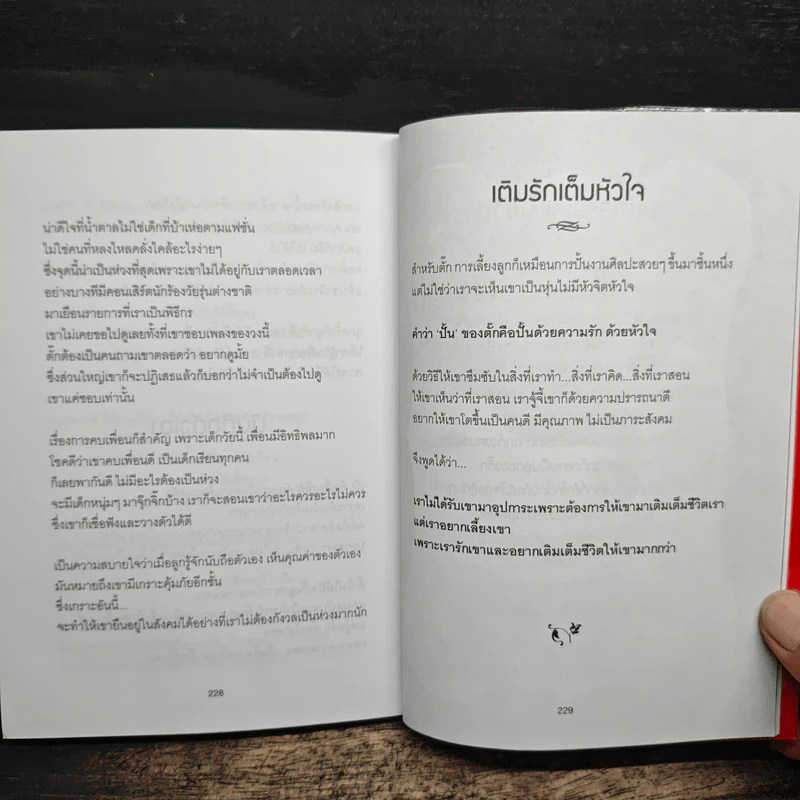 น่าดีใจที่น้ำตาลไม่ใช่เด็กที่บ้าเห่อตามแฟชั่น
ไม่ใช่คนที่หลงไหลคลั่งไคล้อะไรง่ายๆ
ซึ่งจุดนี้น่าเป็นห่วงที่สุดเพราะเขาไม่ได้อยู่กับเราตลอดเวลา
อย่างบางทีมีคอนเสิร์ตนักร้องวัยรุ่นต่างชาติ
มาเยือนรายการที่เราเป็นพิธีกร
เขาไม่เคยขอไปดูเลยทั้งที่เขาชอบเพลงของวงนี้
ตั๊กต้องเป็นคนถามเขาตลอดว่า อยากดูมั้ย
ซึ่งส่วนใหญ่เขาก็จะปฏิเสธแล้วก็บอกว่าไม่จำเป็นต้องไปดู
เขาแค่ชอบเท่านั้น
เรื่องการคบเพื่อนก็สำคัญ เพราะเด็กวัยนี้ เพื่อนมีอิทธิพลมาก
โชคดีว่าเขาคบเพื่อนดี เป็นเด็กเรียนทุกคน
ก็เลยพากันดี ไม่มีอะไรต้องเป็นห่วง
จะมีเด็กหนุ่มๆ มาจุ๊กจิ๊กบ้าง เราก็จะสอนเขาว่าอะไรควรอะไรไม่ควร
ซึ่งเขาก็เชื่อฟังและวางตัวได้ดี
เป็นความสบายใจว่าเมื่อลูกรู้จักนับถือตัวเอง เห็นคุณค่าของตัวเอง
มันหมายถึงเขามีเกราะคุ้มภัยอีกชั้น
ซึ่งเกราะอันนี้...
จะทำให้เขายืนอยู่ในสังคมได้อย่างที่เราไม่ต้องกังวลเป็นห่วงมากนัก
228
เติมรักเต็มหัวใจ
สำหรับตั๊ก การเลี้ยงลูกก็เหมือนการปั้นงานศิลปะสวยๆ ขึ้นมาชิ้นหนึ่ง
แต่ไม่ใช่ว่าเราจะเห็นเขาเป็นหุ่นไม่มีหัวจิตหัวใจ
คำว่า ‘ปั้น’ ของตั๊กคือปั้นด้วยความรัก ด้วยหัวใจ
ด้วยวิธีให้เขาซึมซับในสิ่งที่เราทำ...สิ่งที่เราคิด...สิ่งที่เราสอน
ให้เขาเห็นว่าที่เราสอน เราจู้จี้เขาก็ด้วยความปรารถนาดี
อยากให้เขาโตขึ้นเป็นคนดี มีคุณภาพ ไม่เป็นภาระสังคม
จึงพูดได้ว่า...
เราไม่ได้รับเขามาอุปการะเพราะต้องการให้เขามาเติมเต็มชีวิตเรา
แต่เราอยากเลี้ยงเขา
เพราะเรารักเขาและอยากเติมเต็มชีวิตให้เขามากกว่า
229